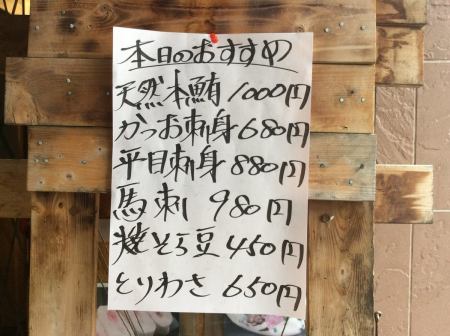 本日のおすすめ
天然本鮪 1000円
かつお刺身 680円
平目刺身 880円
馬刺 980円
焼そら豆 450円
とりわさ 650円